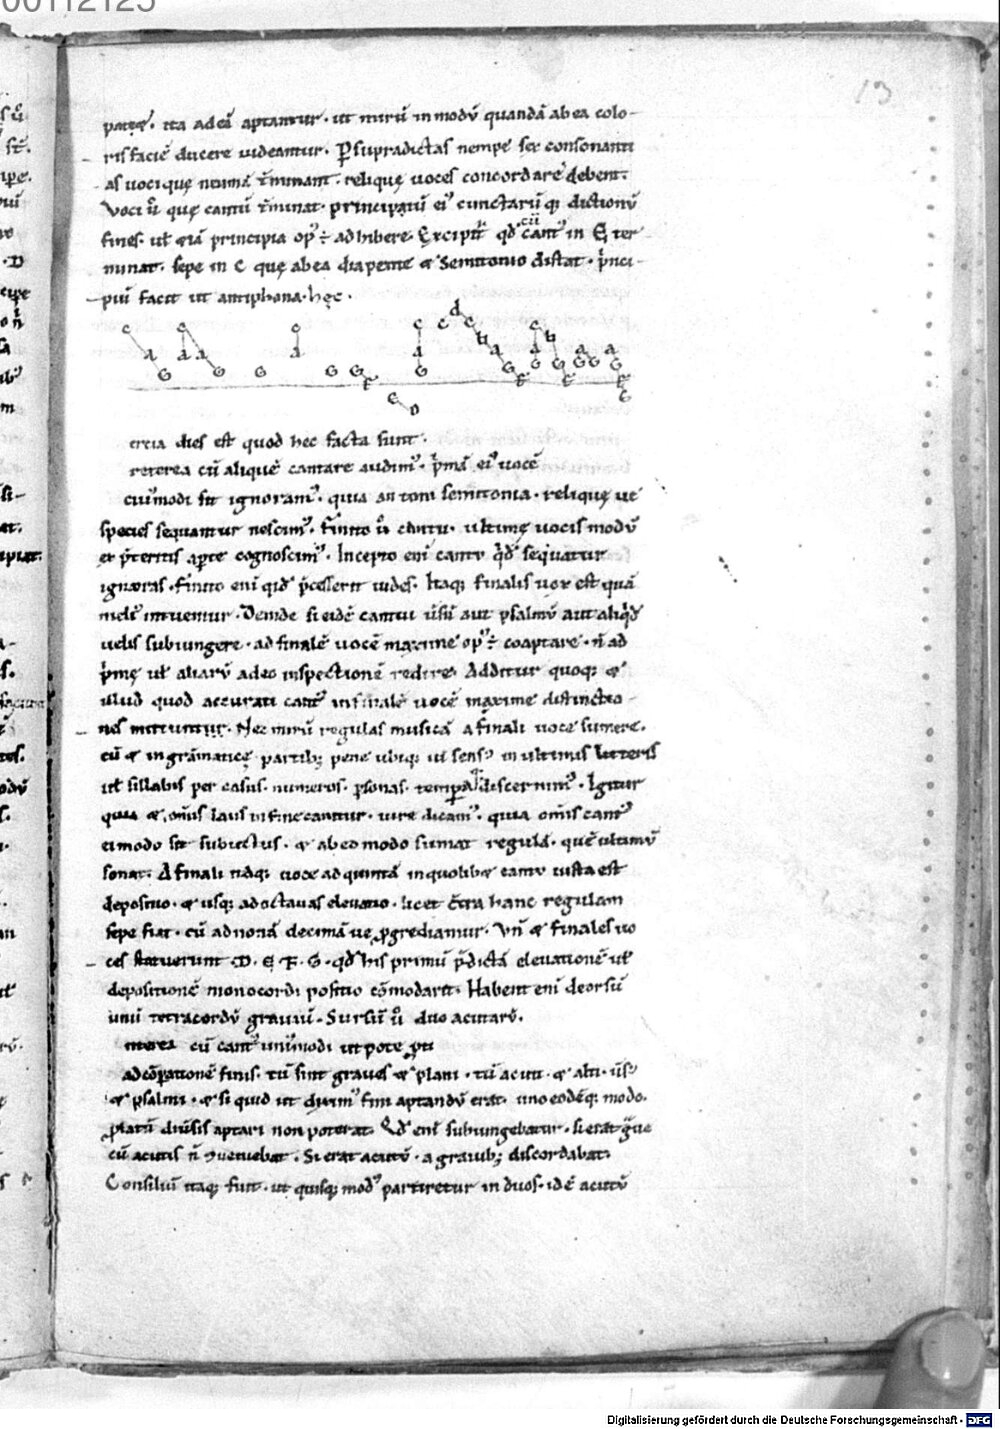 00112125
13
patere. ita ad eā aptantur. ut mirū in modū quandā ab ea colo-
ris faciē ducere videantur. P supradictas nempe sex consonanti
as voci quę neumā t̄minant. reliquę voces concordare debent.
Voci ū quę cantū t̄minat. principatū ei' cunctarūq; distionū
fines. ul' etiā principia op' ÷ adhibere. Excipit' qd' cū cant' in E ter
minat. sepe in c quę ab ea diapente et semitonio distat. p̄nci-
piū facit ut antiphona. hęc.
c c c c c d c c
a a a a a ♮ a a ♮ a a
G G G G G G G G G G G G
F F F F
E D E
ercia dies est quod hec facta sunt.
reterea cū aliquē cantare audim'. p̄mā ei' vocē
cui'modi sit ignoram'. quia an toni semitonia. reliquę ve
species sequantur nescim'. Finito ū cantu. ultimę vocis modū
ex p̄teritis apte cognoscim'. Incepto eni cantu qd' sequatur
ignoras. finito eni qid p̄cesserit vides. Itaq; finalis vox est quā
meli' intuemur. Deinde si eidē cantui v̄sū aut psalmū aut aliqd'
velis subiungere. ad finalē vocē maxime op' ÷ coaptare. n̄ ad
p̄mę ul' aliarū adeo inspectionē redire. Additur quoq; et
illud quod accurati cant' in finale vocē maxime distinctio-
nes mittuntur. Nec mirū regulas musicā a finali voce sumere.
cū et in grāmaticę partib; pene ubiq; vī sens' in ultimis litteris
ul' sillabis per casus. numeros. p̱sonas. tempora discernim'. Igitur
quia et om̄is laus in fine canitur. iure dicam'. quia om̄is cant'
ei modo sit subiectus. et ab eo modo sumat regulā. quē ultimū
sonat. A finali itaq; voce ad quintā in quolib; cantu iusta est
depositio. et usq; ad octavas elevatio. licet c̄tra hanc regulam
sepe fiat. cū ad nonā decimā ve p̱grediamur. Vn̄ et finales vo
ces statuerunt .D. E. F. G. qd' his primū p̄dictā elevationē ul'
depositionē monocordi positio cōmodarit. Habent eni deorsū
unū tetracordū graviū. Sursū ū duo acutarū.
nterea cū cant' uni'modi utpote pti
ad cōparationē finis. tū sint graves et plani. tū acuti. et alti. v̄s'
et psalmi. et si quid ut dixim' fini aptandū erat. uno eodēq; modo.
platū div̄sis aptari non poterat. Qd' eni subiungebatur. si erat gūe
cū acutis n̄ 9veniebat. Si erat acutū. a gravib; discordabat.
Consiliū itaq; fuit. ut quisq; mod' partiretur in duos. id ē acutū
Digitalisierung gefördert durch die Deutsche Forschungsgemeinschaft - DFG